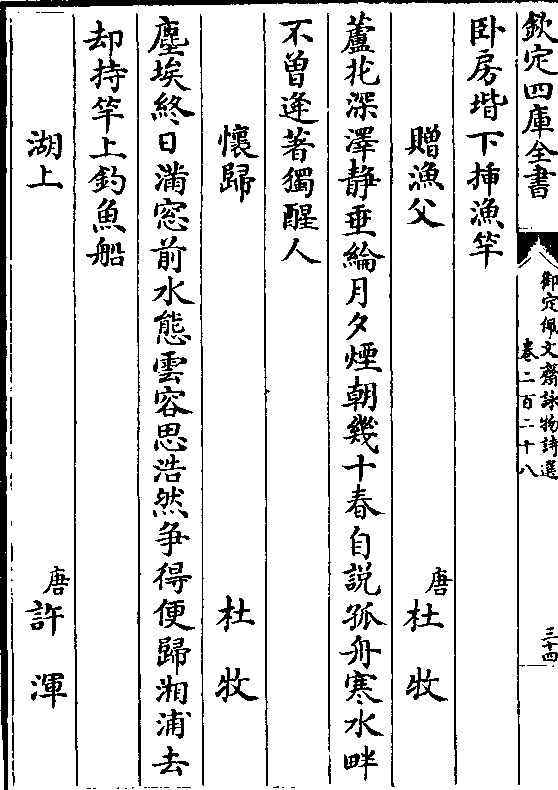 欽定四庫全書
御定佩文齋詠物詩選
卷二百二十八
三十四
卧房堦下揷漁竿
贈漁父
唐杜牧
蘆花深澤静垂綸月夕煙朝幾十春自説孤舟寒水畔
不曾逢著獨醒人
懷歸
杜牧
塵埃終日滿窓前水態雲容思浩然争得便歸湘浦去
却持竿上釣魚船
湖上
唐許渾